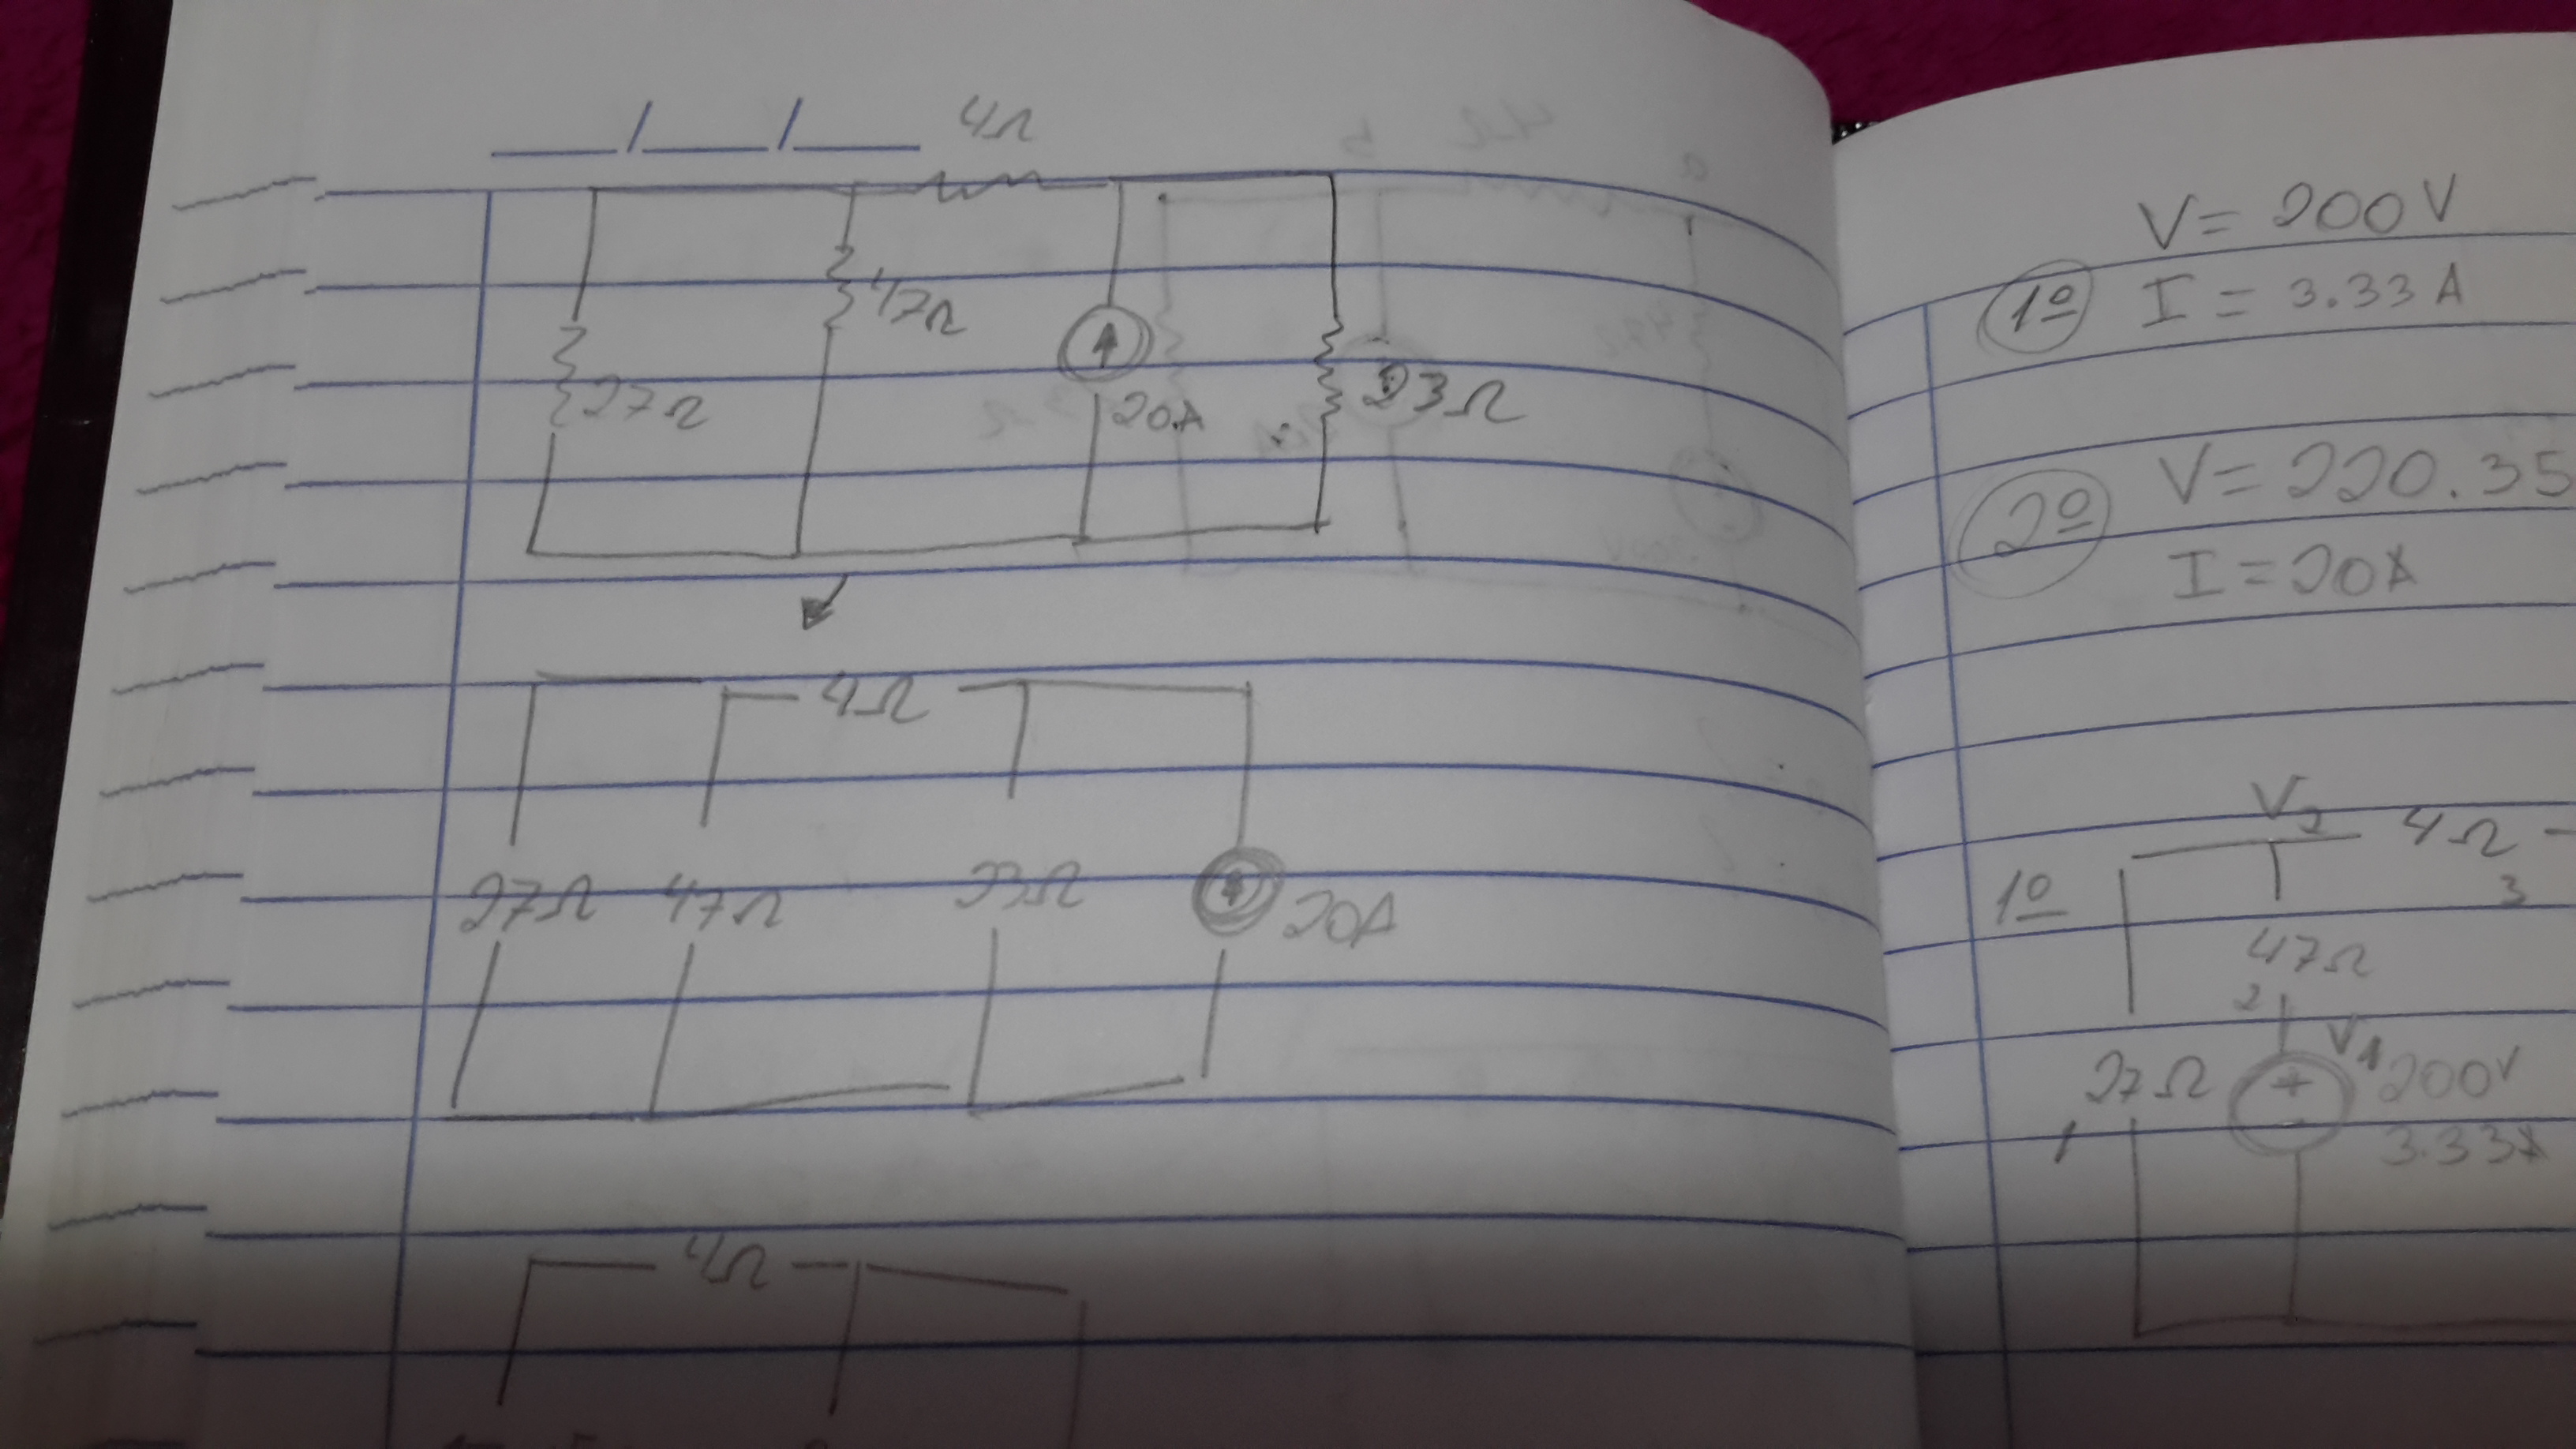 4Ω
47Ω
27Ω
20A
23Ω
4Ω
27Ω 47Ω 23Ω
20A
4Ω
V = 200V
1º I = 3.33 A
V = 220.35
2º
I = 20A
V2
4Ω
1º
3
47Ω
2
V1
27Ω
+
200V
-
1
3.33A